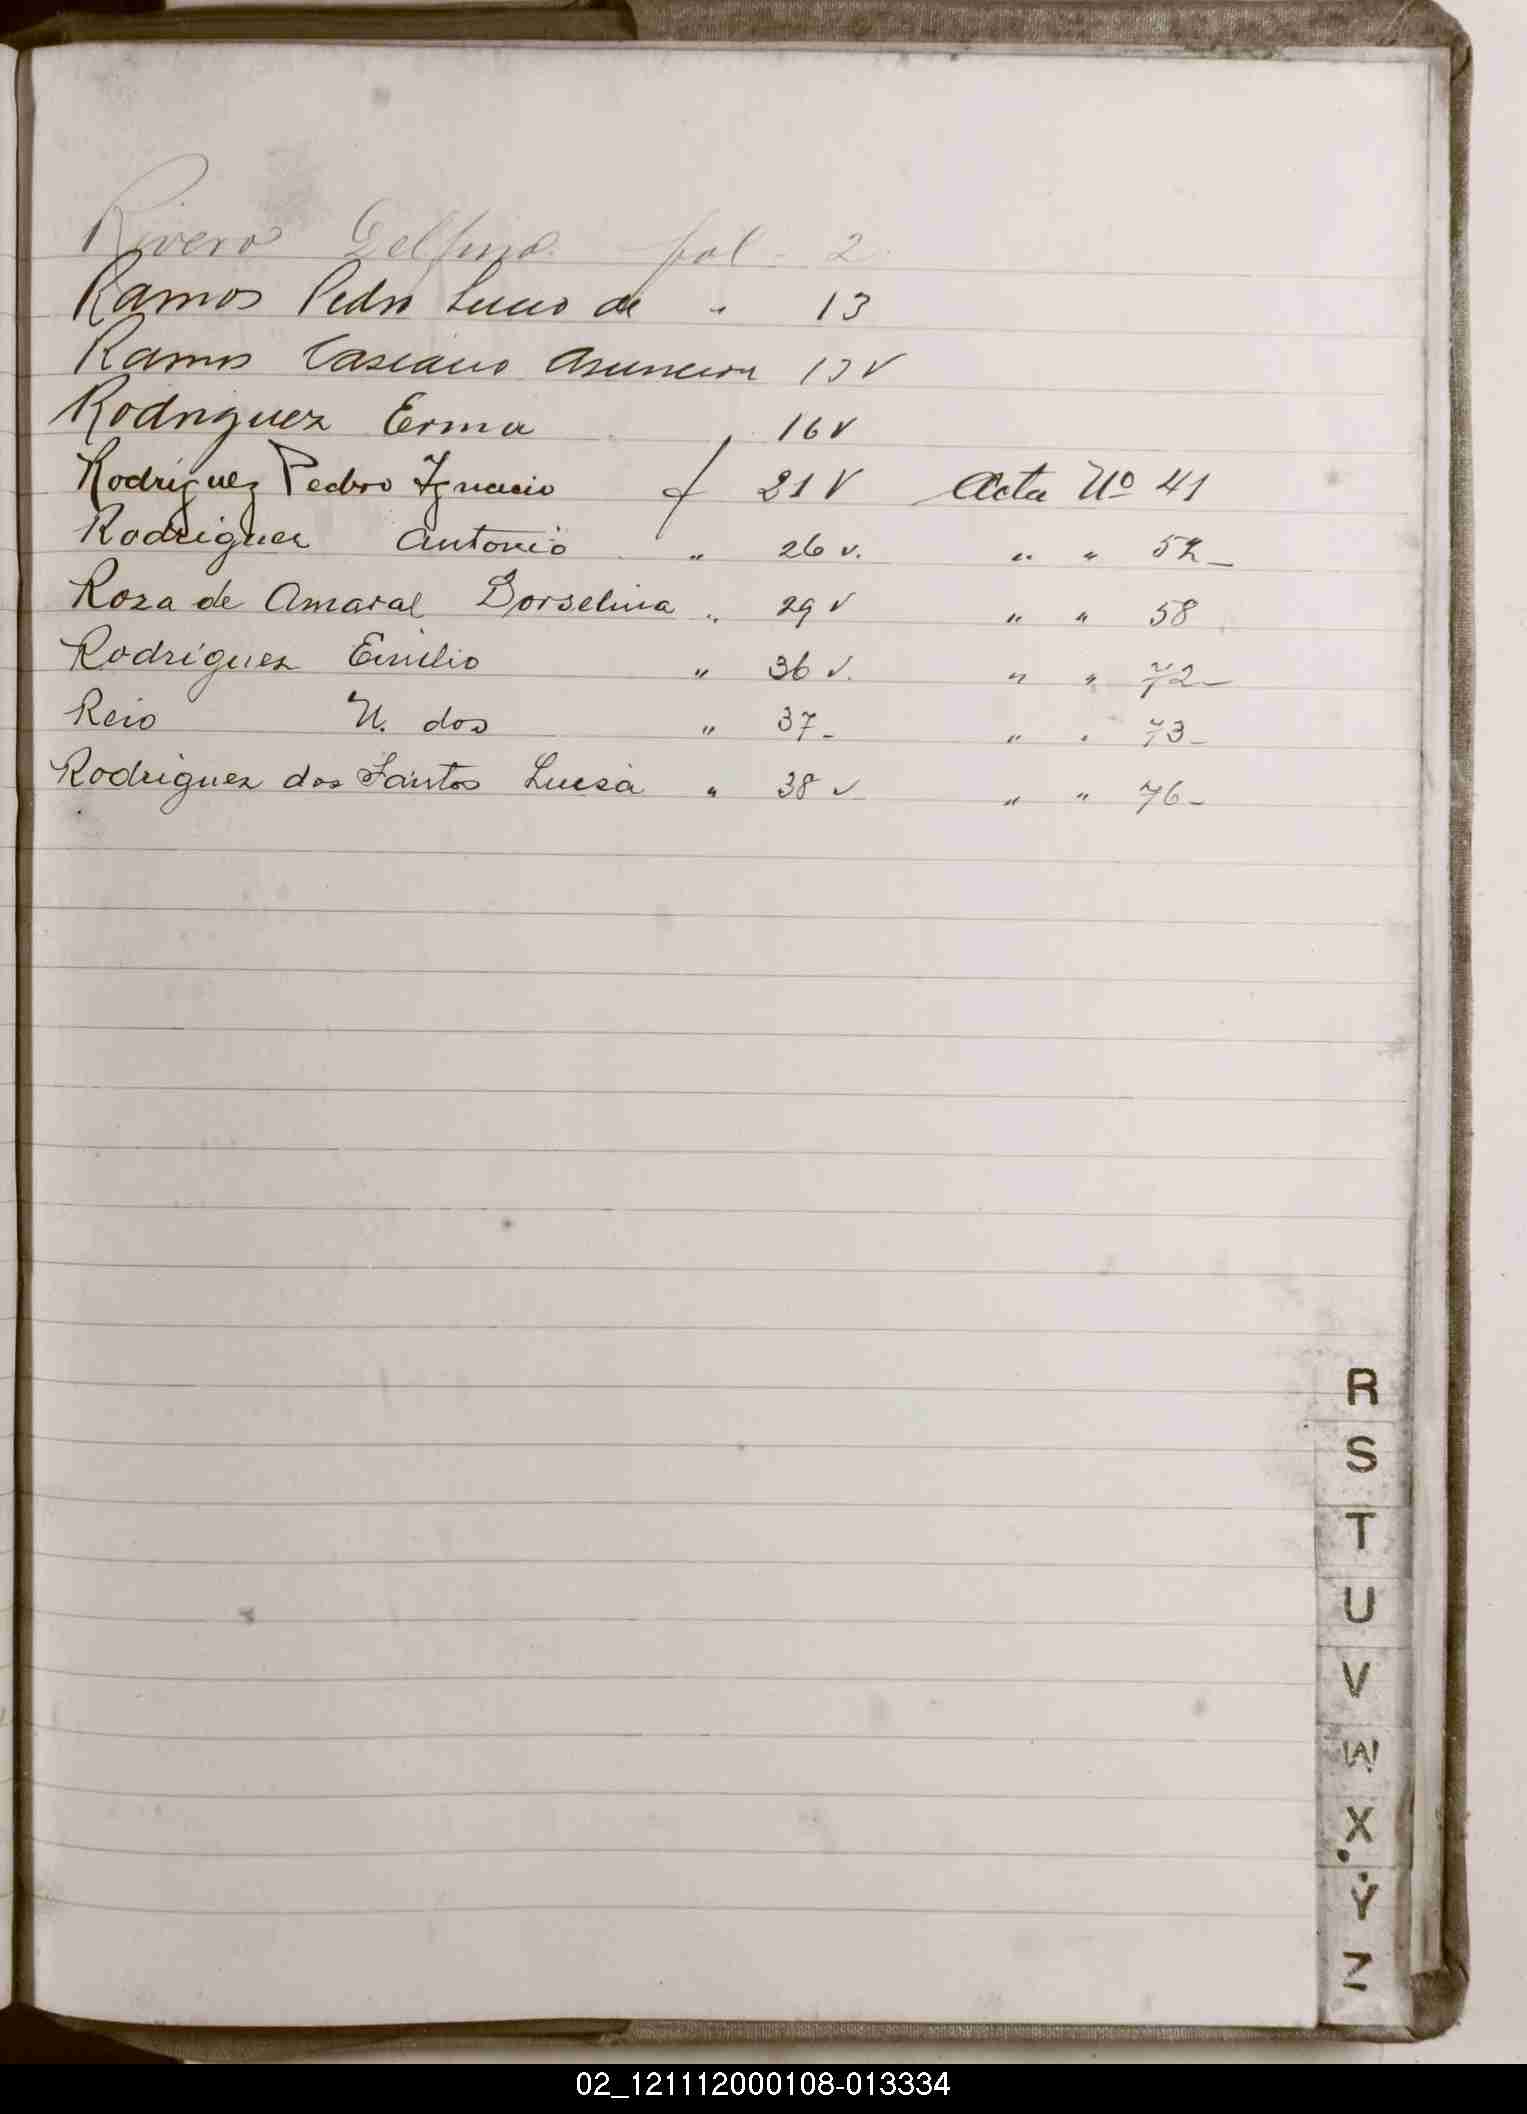 Rivero Delfina. fol. 2
Ramos Pedro Lucio de " 13
Ramos Casiano Asuncion 13 v
Rodriguez Erma 16 v
Rodriguez Pedro Ignacio f 21 v Acta Nº 41
Rodriguez Antonio " 26 v. " " 52_
Roza de Amaral Dorselina " 29 v " " 58
Rodriguez Emilio " 36 v. " " 72_
Reio N. dos " 37_ " " 73_
Rodriguez dos Santos Luisa " 38 v " " 76_
R
S
T
U
V
W
X
Y
Z
02_121112000108-013334